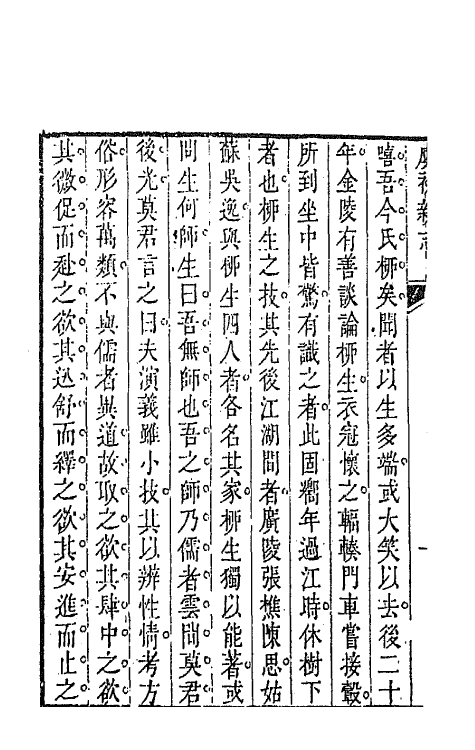 虞初新志
嘻。吾今氏柳矣。聞者以生多端。或大笑以去。後二十
年。金陵有善談論柳生。衣冠懷之。輻輳門。車嘗接轂。
所到坐中皆驚。有識之者。此固嚮年過江時。休樹下
者也。柳生之技。其先後江湖間者。廣陵張樵陳思。姑
蘇吳逸。與柳生四人者。各名其家。柳生獨以能著。或
問生何師。生曰。吾無師也。吾之師乃儒者雲間莫君
後光。莫君言之曰。夫演義雖小技。其以辨性情。考方
俗。形容萬類。不與儒者異道。故取之欲其肆。中之欲
其微。促而赴之欲其迅。舒而繹之欲其安。進而止之